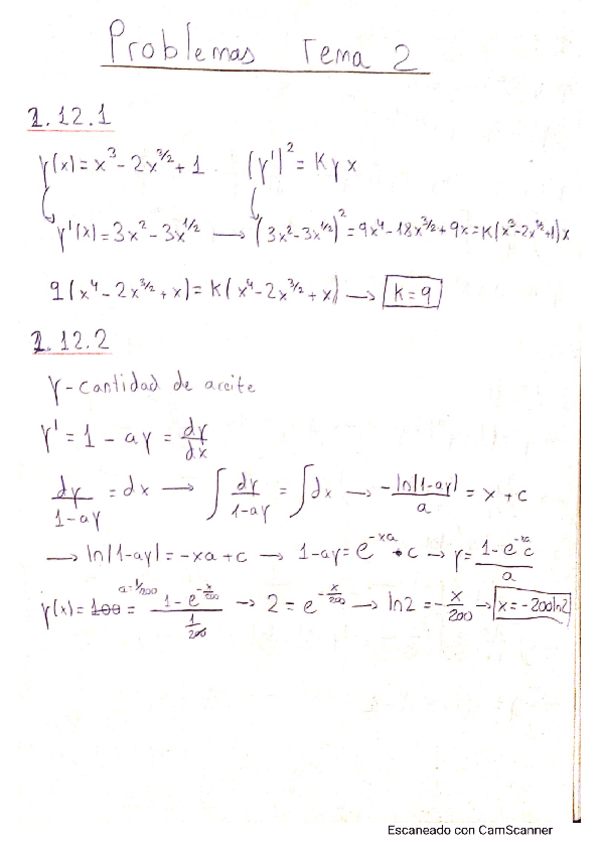 Problemas Tema 2
2.12.1
y(x)=x³-2x^{3/2}+1   (y')²=Kyx
y'(x)=3x²-3x^{1/2} → (3x²-3x^{1/2})²=9x⁴-18x^{3/2}+9x=K(x³-2x^{3/2}+1)x
9(x⁴-2x^{3/2}+x)=K(x⁴-2x^{3/2}+x) → K=9
2.12.2
y-cantidad de aceite
y'=1-ay=dy/dx
dy/(1-ay)=dx → ∫dy/(1-ay)=∫dx → -ln|1-ay|/a=x+c
→ ln|1-ay|=-xa+c → 1-ay=e^{-xa}·c → y=(1-e^{-xa}c)/a
a=1/200
y(x)=100=(1-e^{-x/200})/(1/200) → 2=e^{-x/200} → ln2=-x/200 → x=-200ln2
Escaneado con CamScanner